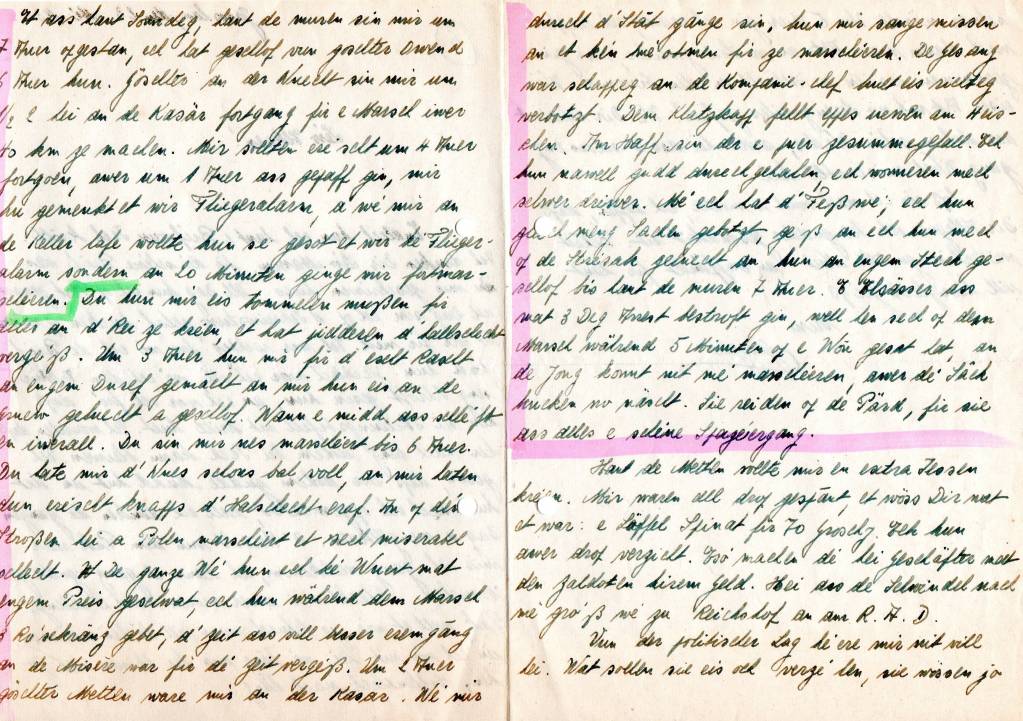 Et ass haut Sonndeg, haut de muren sin mir um
7 Auer opgestan, ech hat geschlof vum gëschter Owend
6 Auer hun. Gëschter an der Nuecht sin mir um
1/2 2 hei an de Kasär fortgang fir e Marsch iwer
40 km ze machen. Mir sollten eréischt um 4 Auer
fortgoen, awer um 1 Auer ass gepaff gin, mir
hu gemenkt et wir Fliegeralarm, a wé mir an
de Keller lafe wollte hun se gesot et wir ké Flieger-
alarm sondern an 20 Minuten ginge mir fortmar-
schéieren. Du hun mir eis tommelen mußen fir
alles an d'Rei ze kréien, et hat jidderen d'haleflecht
vergeß. Um 3 Auer hun mir fir d'éischt Rascht
an engem Duref gemâcht an mir hun eis an de
geluecht a geschlof. Wann e midd ass schléift
en iwerall. Du sin mir nes marschéiert bis 6 Auer.
Du hate mir d'Nues schons bal voll, an mir haten
dun eréischt knapps d'Halschecht eraf. An op dén
Stroßen hei a Polen marschéiert et sech miserabel
schlecht. De ganze Wé hun ech ké Wuert mat
engem Preis geschwat, ech hun während dem Marsch
3 Ro'sekränz gebet, d'zeit ass vill besser eremgâng
an de Misère war fir dé zeit vergeß. Um 2 Auer
gëschter Metten ware mir an der Kasär. Wé mir
duerch d'Stât gânge sin, hun mir sange missen
an et kén mé otmen fir ze marschéieren. De Gesang
war schappeg an de Kompanie-chef huet eis richteg
verbotzt. Dem Klatzkapp fehlt eppes uewen am Heis-
chen. Am Haff sin der e puer zesummegefall. Ech
hun nawell gudd duerchgehalen, ech wonneren mech
selwer driwer. Mé ech hat d'Féß wé; ech hun
gleich meng Sachen gebotzt, geiß an ech hun mech
op de Stréisak geluecht an hun an engem Steck ge-
schlof bis haut de muren 7 Auer. E Elsässer ass
mat 3 Deg Arrest bestroft gin, well hen sech op dem
Marsch während 5 Minuten op e Won gesat hat, an
de Jong konnt nit mé marschéieren, awer dé Säck
kucken no nâscht. Sie reiden op de Pärd, fir sie
ass alles e schéine Spazéiergang.
Haut de Metten sollte mir en extra Iessen
kréien. Mir waren all drop gespant, et wöss Dir wat
et war: e Löffel Spinat fir 70 Grosch. Ech hun
awer drop verzicht. Eso' machen dé hei Geschäfter mit
den Zaldoten hirem Geld. Hei ass de Schwindel nach
mé gro'ß wé zu Reichshof an am R. A. D.
Vun der politischer Lag héiere mir nit vill
hei. Wat sollen sie eis och verzé len, sie wössen jo